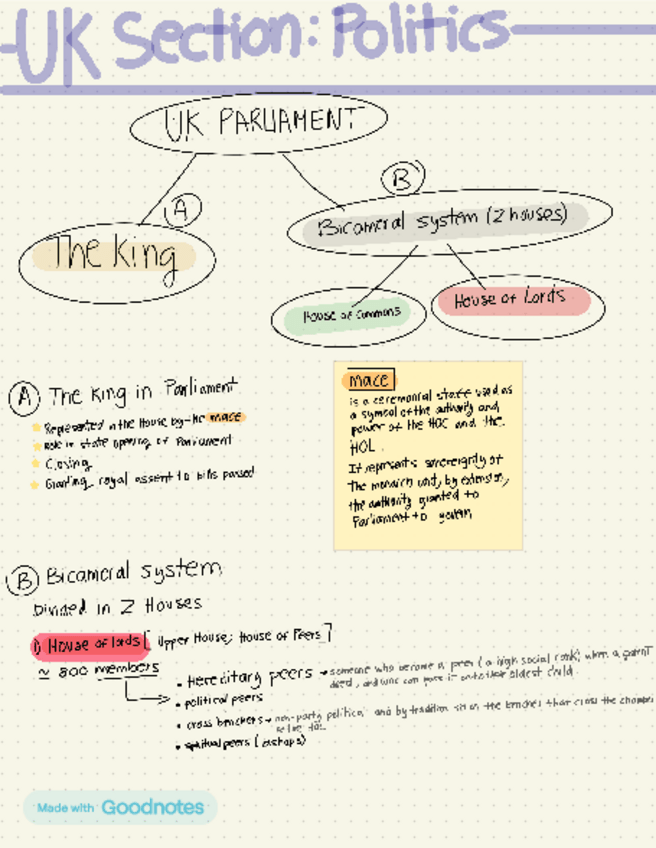 UK Section: Politics
UK PARLIAMENT
A
B
The King
Bicameral system (2 houses)
House of Commons
House of Lords
A The King in Parliament
Represented in the House by the mace
Role in state opening of Parliament
Closing
Granting royal assent to bills passed
mace
is a ceremonial staff used as
a symbol of the authority and
power of the HOC and the
HOL.
It represents sovereignty of
the monarch and, by extension,
the authority granted to
Parliament to govern
B Bicameral system
Divided in 2 Houses
1) House of lords [Upper House; House of Peers]
~ 800 members
• Hereditary peers → someone who become a peer (a high social rank) when a parent
died, and who can pass it onto their oldest child.
• political peers
• cross benchers → non-party political and by tradition sit on the benches that cross the chamber
of the HOL
• spiritual peers (bishops)
Made with Goodnotes